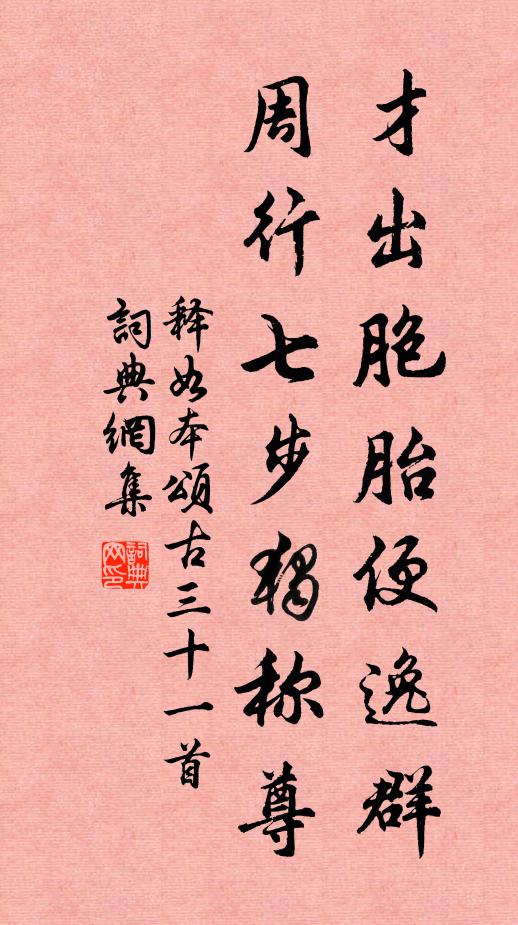 才出胞胎便逸群
周行七步独称尊
释如本颂古三十一首
詞典網集
詞典网印